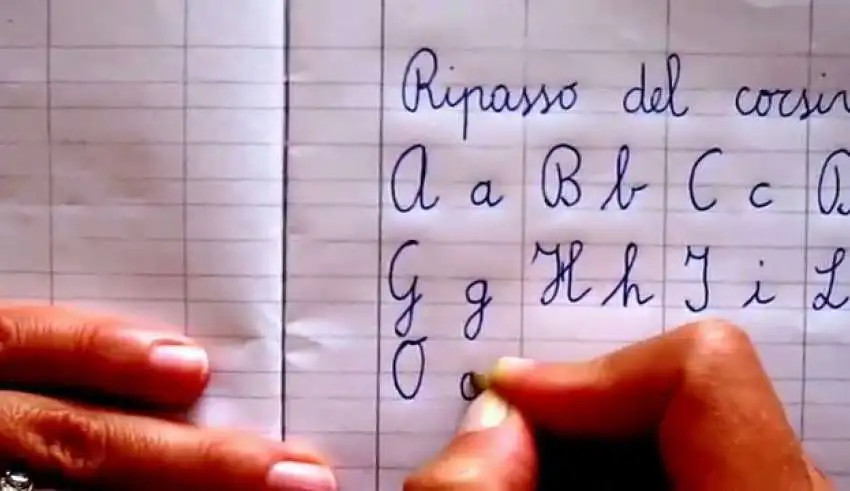 Ripasso del corsi
A a B b C c D
G g H h I i L
O o